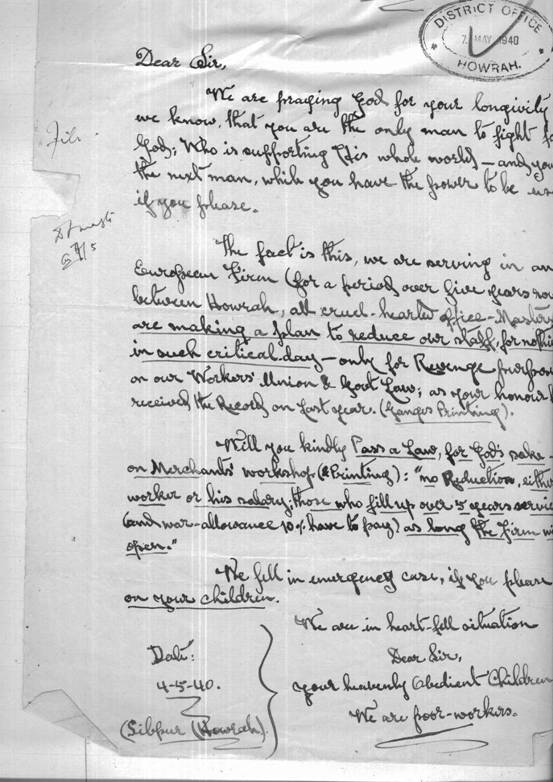 DISTRICT OFFICE
7 MAY 1940
HOWRAH.
Dear Sir,
We are praying God for your longivity
we know, that you are the only man to fight
God; Who is supporting His whole world – and you
the next man, while you have the power to be
if you please.
File.
The fact is this, we are serving in an
European Firm (for a period over five years now
between Howrah, all cruel-hearted office-Masters
are making a plan to reduce our staff, for nothi
in such critical day – only for Revenge purpose
on our Workers' Union & Govt Law; as your honour
received the Record on Last year. (Ganges Printing).
Will you kindly Pass a Law, for God's sake –
on Merchants' workshop (& Printing): "no Reduction, eithe
worker or his salary, those who fill up over 5 years servic
(and war-allowance 10% have to pay) as long the Firm wi
open."
We fell in emergency case, if you please
on your children.
We are in heart-fell situation
Dear Sir,
your heavenly Obedient Children
We are poor-workers.
Date:
4-5-40.
(Sibpur (Howrah).